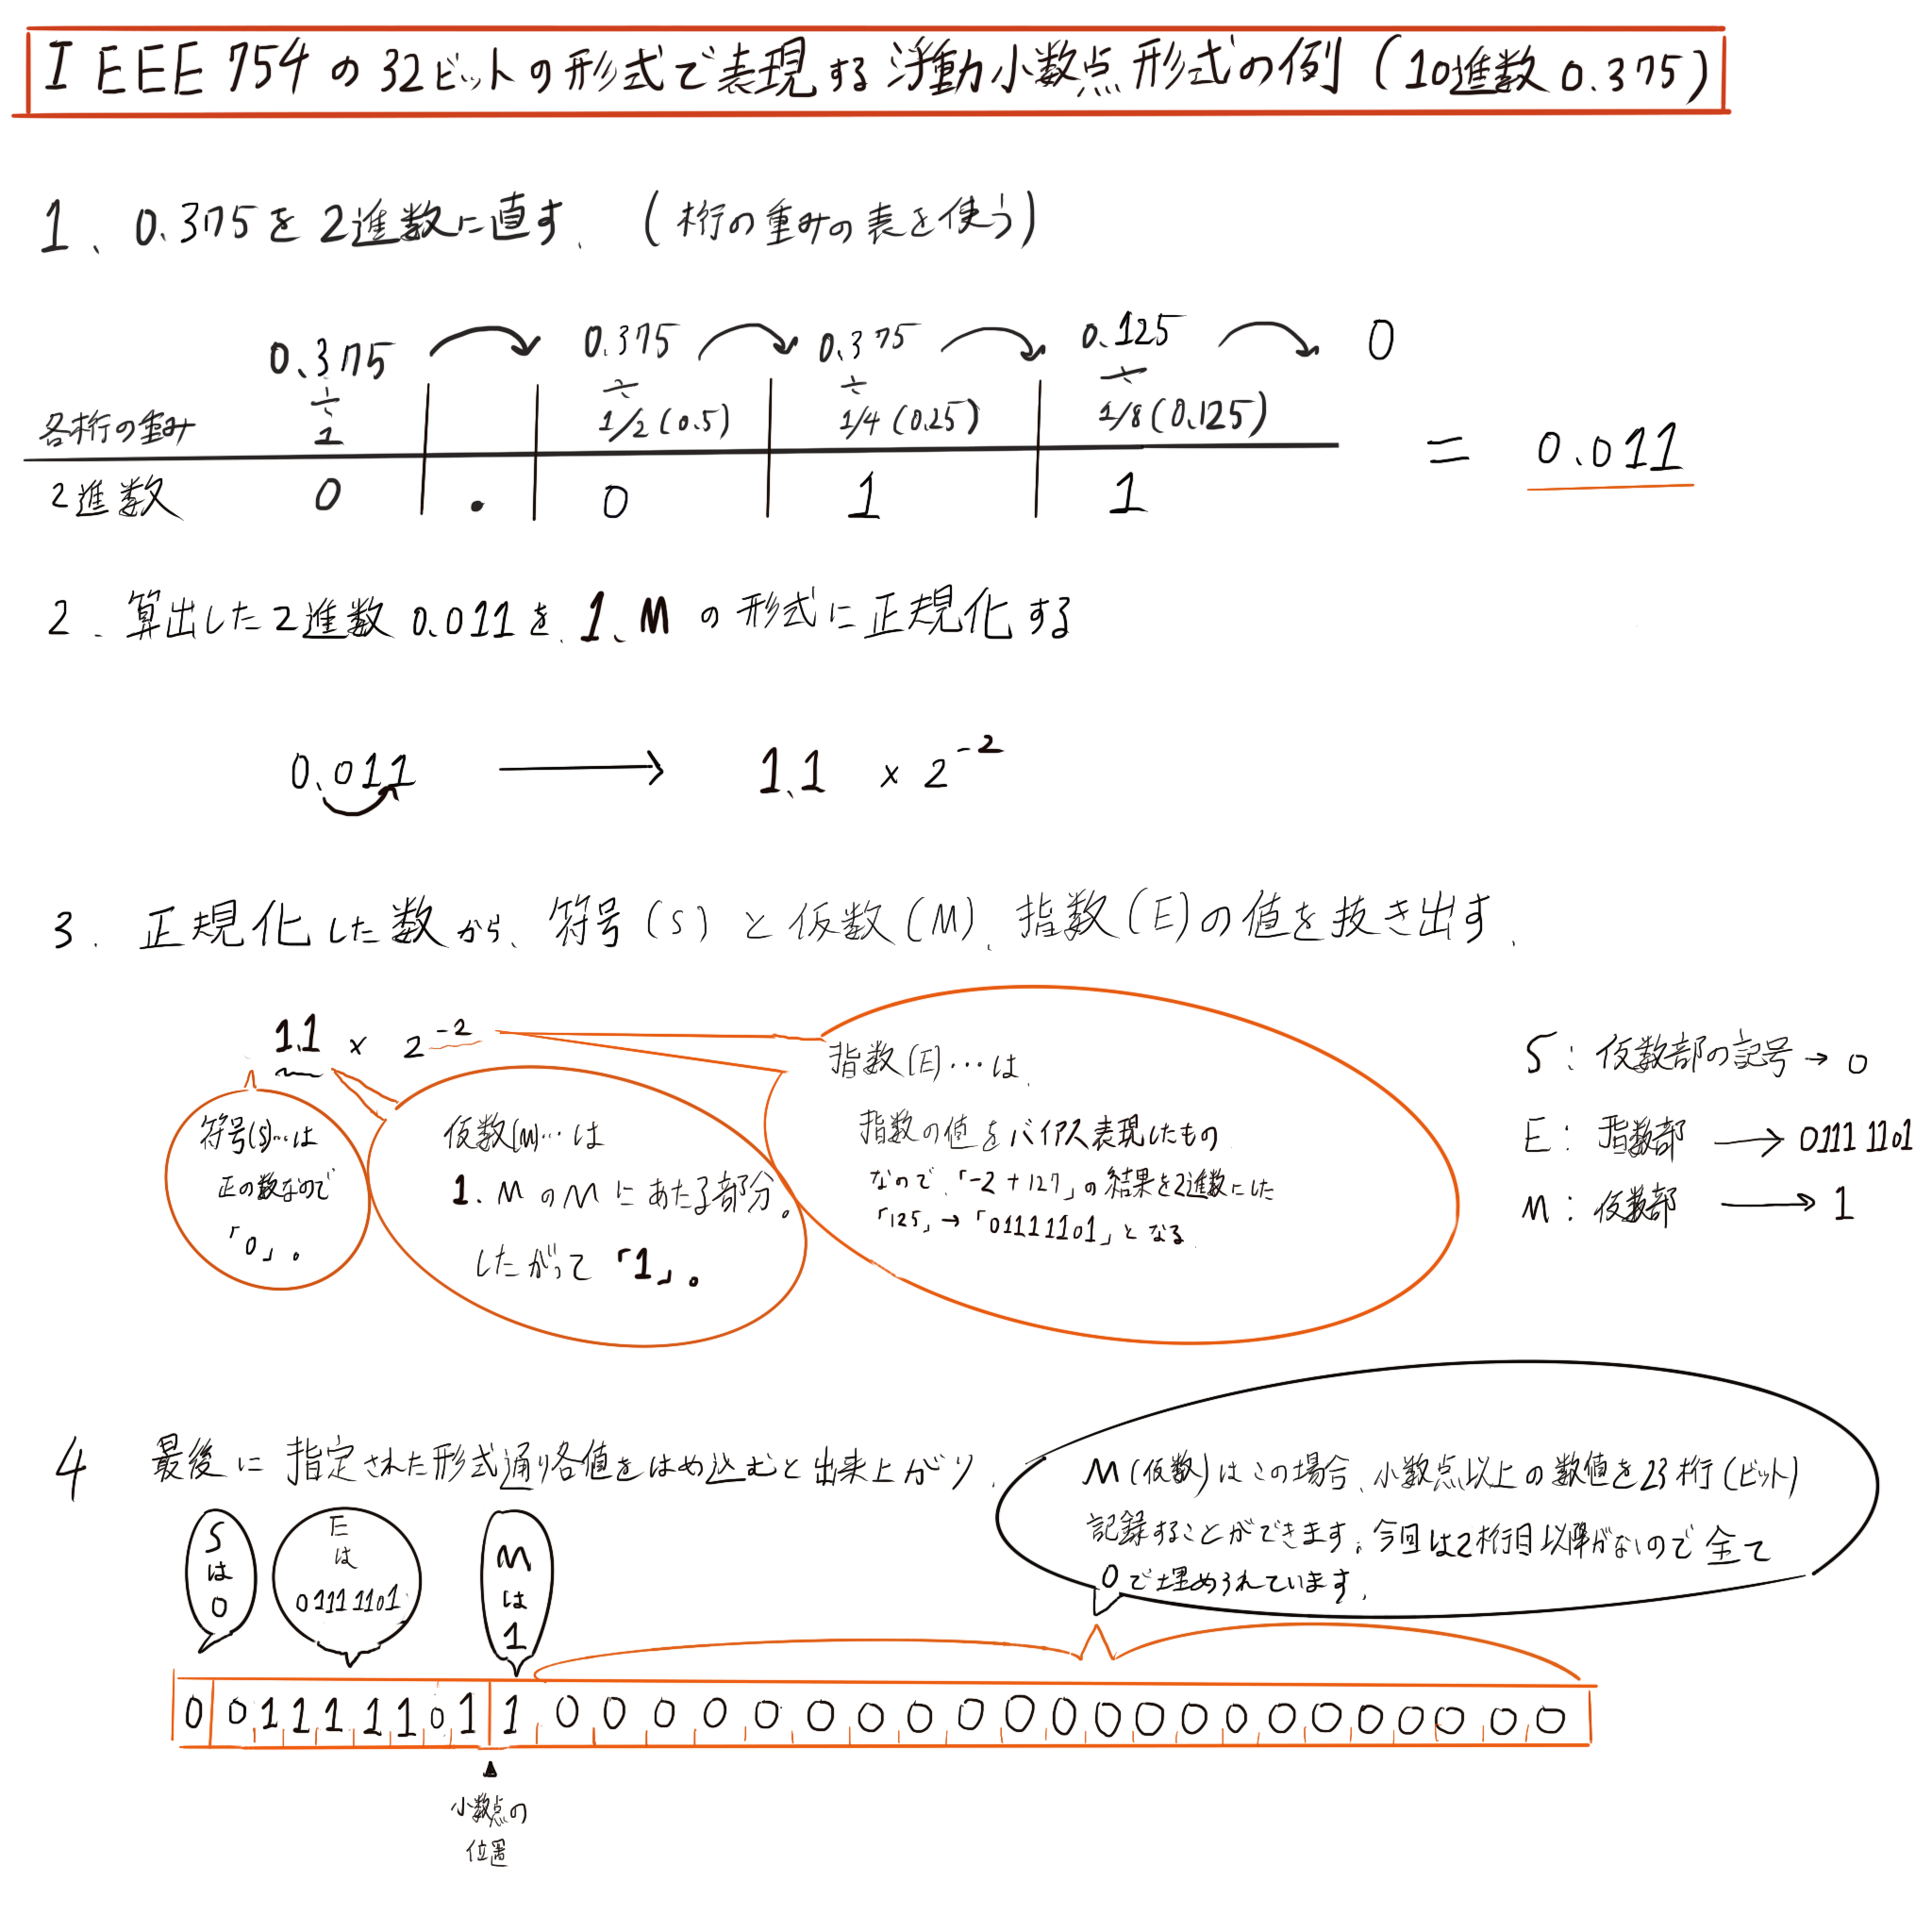 IEEE754の32ビットの形式で表現する浮動小数点形式の例（10進数0.375）
1、0.375を2進数に直す．（桁の重みの表を使う）
0.375 0.375 0.375 0.125 0
÷ ÷ ÷ ÷
各桁の重み 1 1/2(0.5) 1/4(0.25) 1/8(0.125)
2進数 0 . 0 1 1
= 0.011
2．算出した2進数0.011を1.Mの形式に正規化する
0.011 → 1.1 × 2^-2
3．正規化した数から、符号(S)と仮数(M)、指数(E)の値を抜き出す．
1.1 × 2^-2
符号(S)…は
正の数なので
「0」。
仮数(M)…は
1.MのMにあたる部分。
したがって「1」。
指数(E)…は、
指数の値をバイアス表現したもの
なので、「-2+127」の結果を2進数にした
「125」→「01111101」となる
S：仮数部の記号→0
E：指数部→01111101
M：仮数部→1
4 最後に指定された形式通り各値をはめ込むと出来上がり．
M(仮数)はこの場合、小数点以上の数値を23桁(ビット)
記録することができます。今回は2桁目以降がないので全て
0で埋められています．
Sは0
Eは
01111101
Mは1
0 01111101 1 0 0 0 0 0 0 0 0 0 0 0 0 0 0 0 0 0 0 0 0 0 0
小数点の
位置